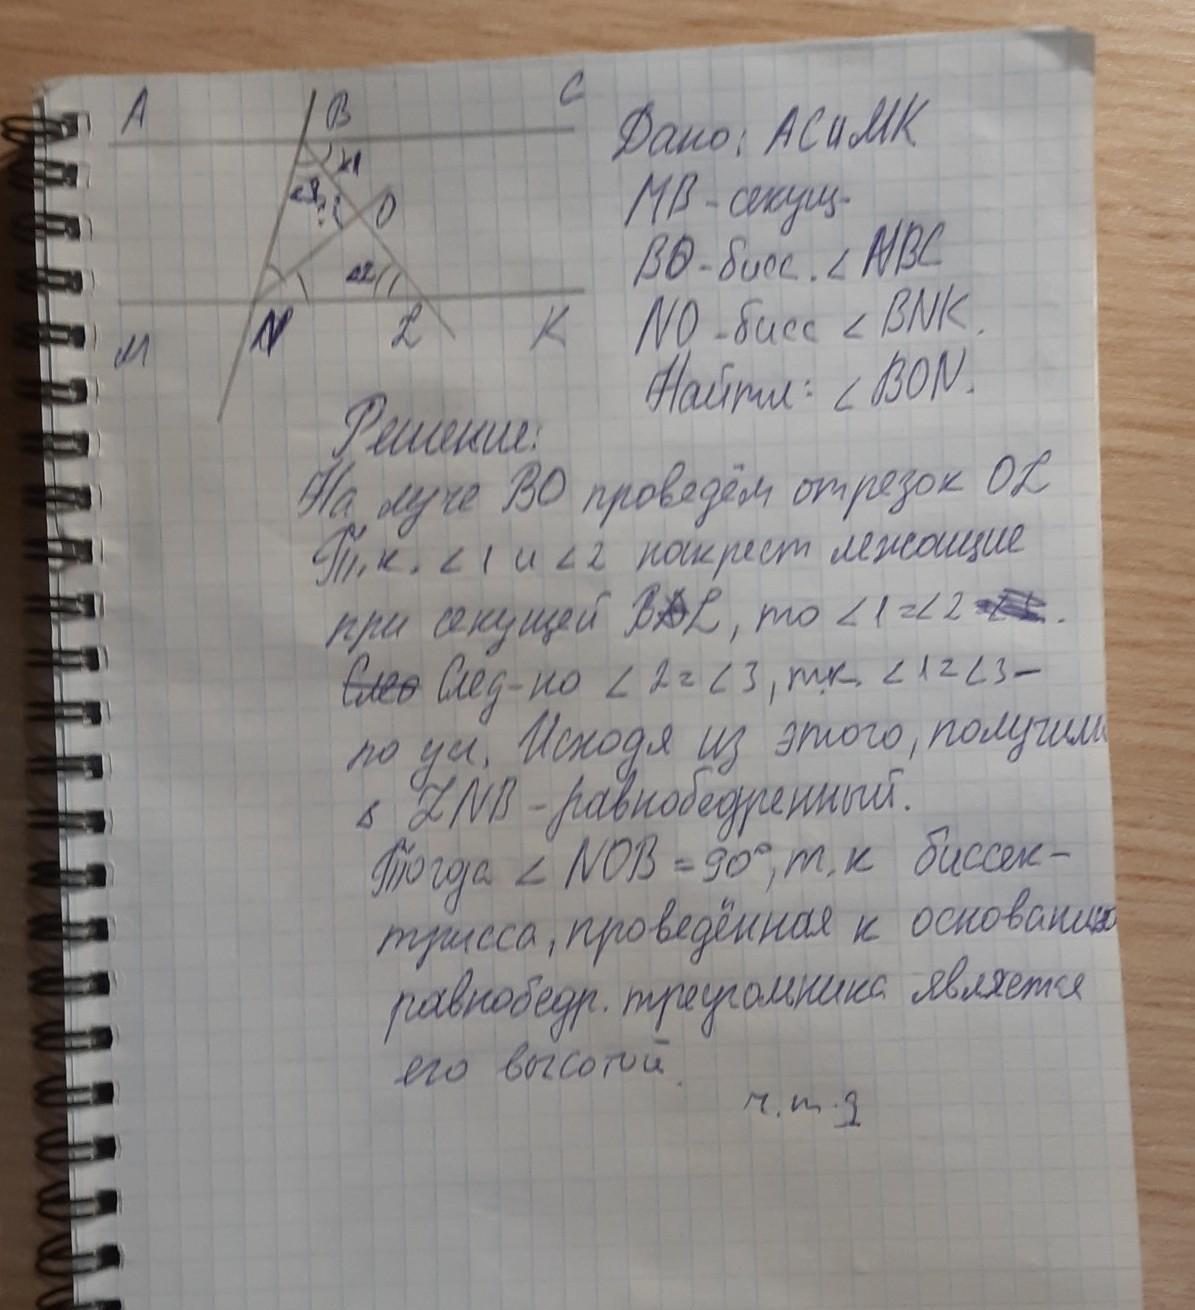 A B C
∠1
∠3
? O
∠2
M N L K
Дано: AC ∥ MK
MB - секущ.
BO - бисс. ∠ NBC
NO - бисс ∠ BNK.
Найти: ∠ BON.
Решение:
На луче BO проведём отрезок OL
Т.к. ∠1 и ∠2 накрест лежащие
при секущей BL, то ∠1=∠2.
След-но ∠2=∠3, т.к. ∠1=∠3 -
по усл. Исходя из этого, получим
Δ LNB - равнобедренный.
Тогда ∠ NOB = 90°, т.к биссек-
трисса, проведённая к основанию
равнобедр. треугольника является
его высотой.
ч.т.д